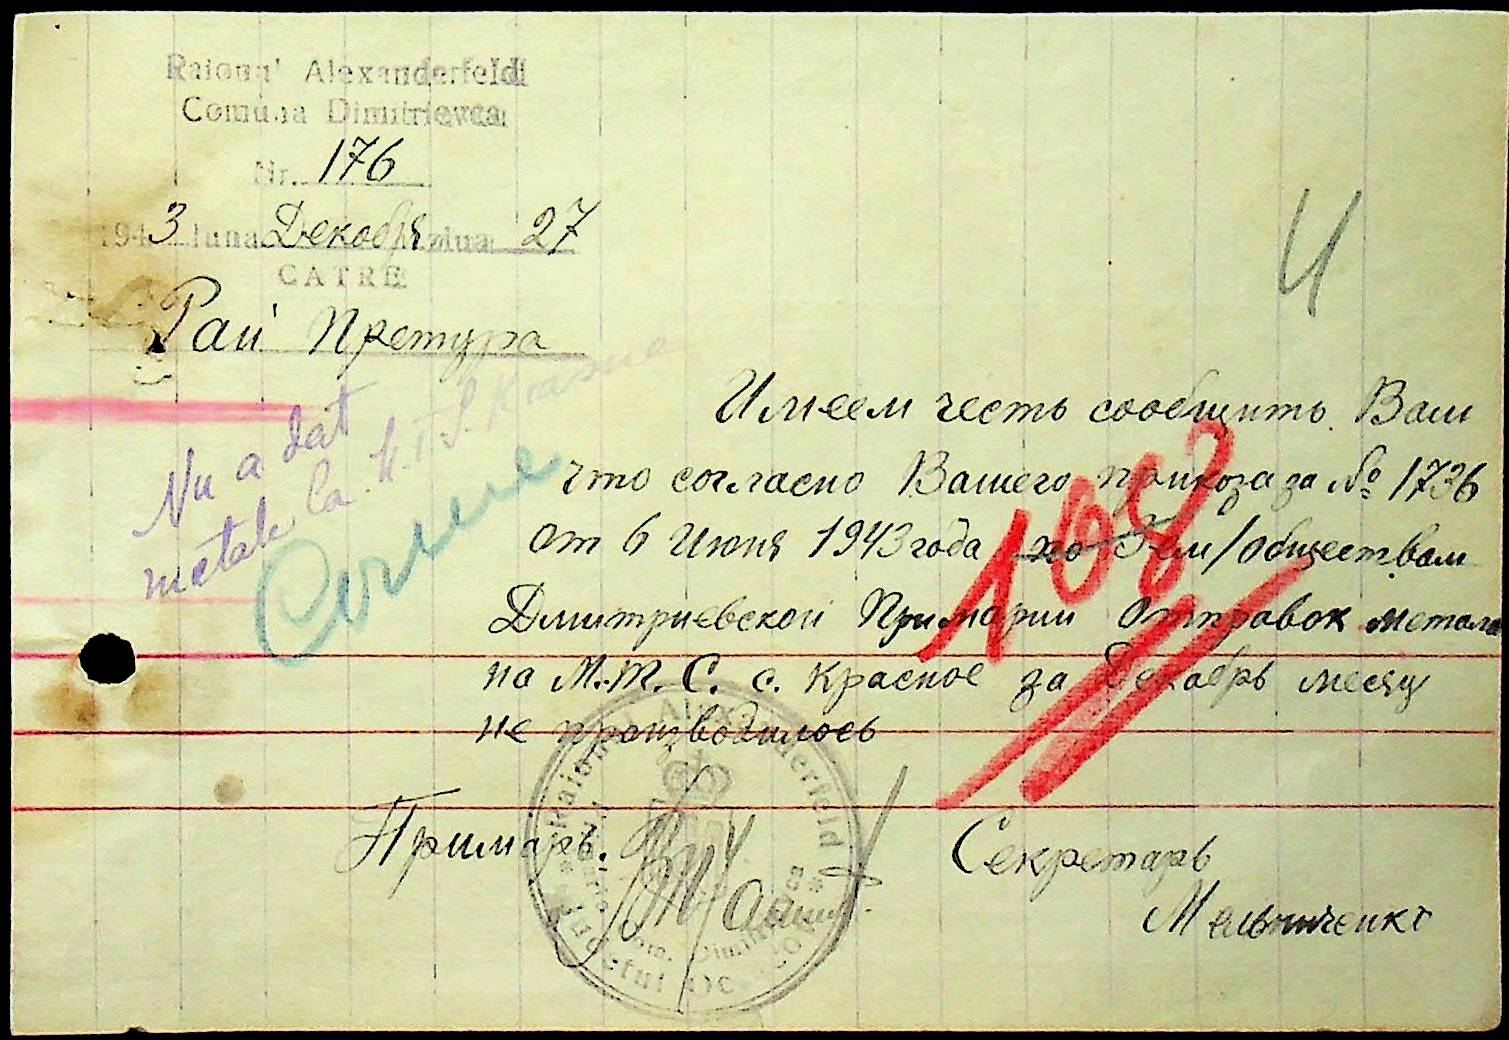 Raionul Alexanderfeld
Comuna Dimitrievca
Nr. 176
1943 luna Декабря ziua 27
CATRE
Рай Претура
И
Имеем честь сообщить Вам
что согласно Вашего приказа за № 1736
от 6 Июня 1943 года по Зем/обществам
Дмитриевской Примарии отправок метала
на М.Т.С. с. Красное за Декабрь месяц
не производилось
Nu a dat
metale la M.T.S. Krasne
108
Примарь.
Секретарь
Мельниченко
Raionul Alexanderfeld
Com. Dimitrievca